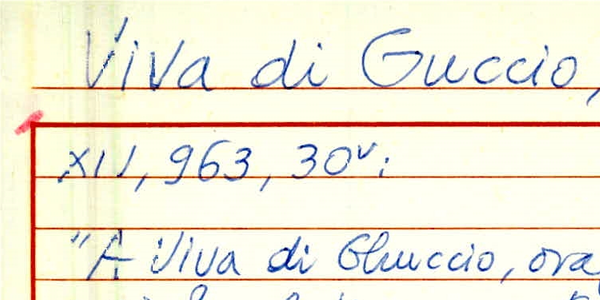 Viva di Guccio,
XII, 963, 30v:
"A Viva di Ghuccio, ora